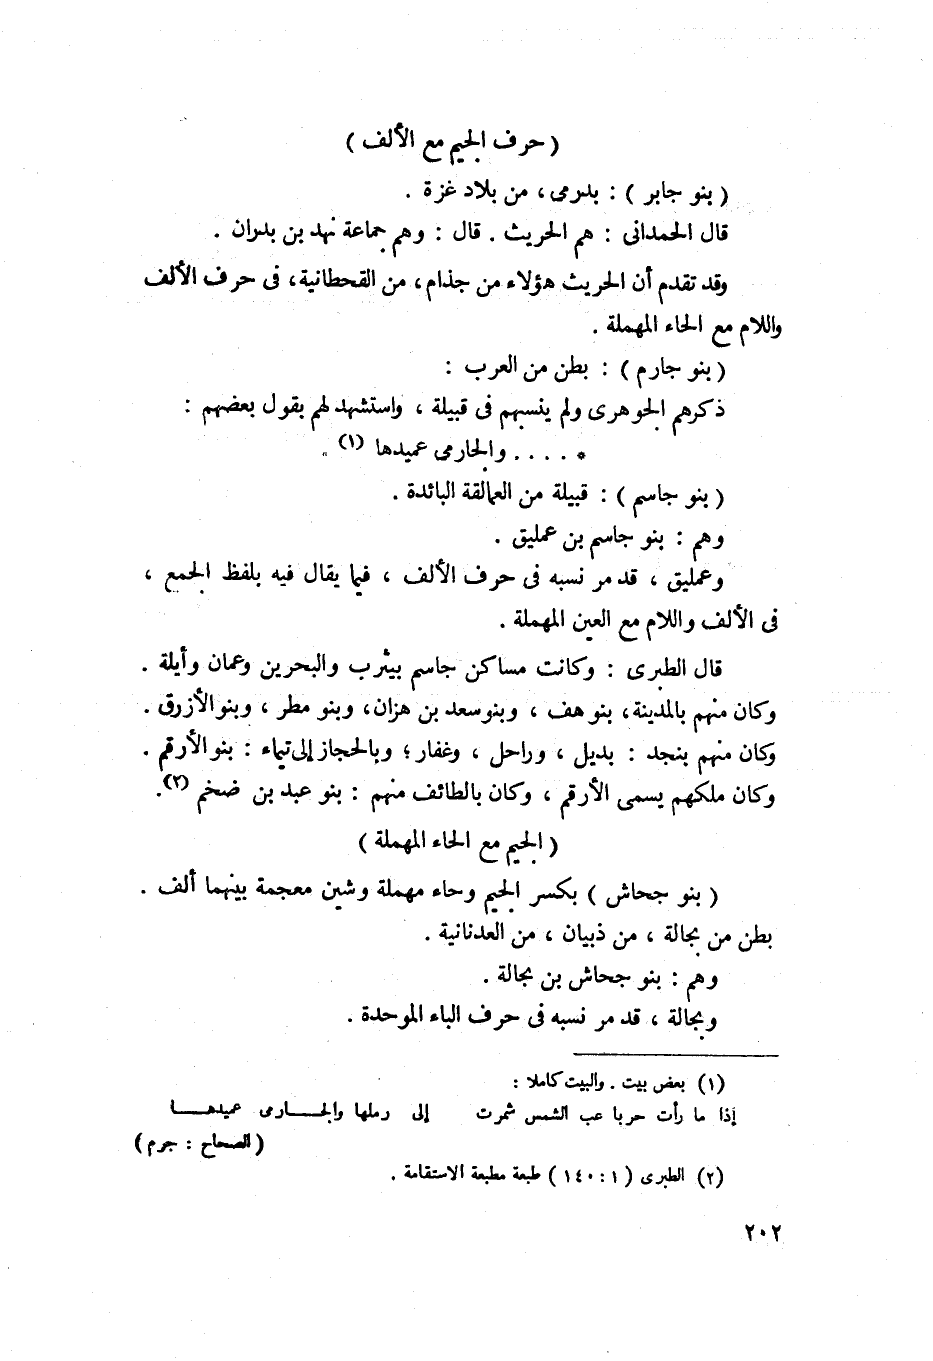 ( حرف الجيم مع الألف )
( بنو جابر ) : بدرمى، من بلاد غزة .
قال الحمدانى : هم الحريث . قال : وهم جماعة نهد بن بدران .
وقد تقدم أن الحريث هؤلاء من جذام، من القحطانية، فى حرف الألف
واللام مع الحاء المهملة .
( بنو جارم ) : بطن من العرب :
ذكرهم الجوهرى ولم ينسبهم فى قبيلة ، واستشهد لهم بقول بعضهم :
* . . . . والجارمى عميدها (١) *
( بنو جاسم ) : قبيلة من العمالقة البائدة .
وهم : بنو جاسم بن عمليق .
وعمليق ، قد مر نسبه فى حرف الألف ، فيما يقال فيه بلفظ الجمع ،
فى الألف واللام مع العين المهملة .
قال الطبرى : وكانت مساكن جاسم بيثرب والبحرين وعمان وأيلة .
وكان منهم بالمدينة، بنو هف ، وبنو سعد بن هزان، وبنو مطر ، وبنو الأزرق .
وكان منهم بنجد : بديل ، وراحل ، وغفار ؛ وبالحجاز إلى تيماء : بنو الأرقم .
وكان ملكهم يسمى الأرقم ، وكان بالطائف منهم : بنو عبد بن ضخم (٢).
( الجيم مع الحاء المهملة )
( بنو جحاش ) بكسر الجيم وحاء مهملة وشين معجمة بينهما ألف .
بطن من بجالة ، من ذبيان ، من العدنانية .
وهم : بنو جحاش بن بجالة .
وبجالة ، قد مر نسبه فى حرف الباء الموحدة .
(١) بعض بيت . والبيت كاملا :
إذا ما رأت حربا عب الشمس شمرت إلى رملها والجــــارمى عميدهـــا
( الصحاح : جرم )
(٢) الطبرى ( ١ : ١٤٠ ) طبعة مطبعة الاستقامة .
٢٠٢